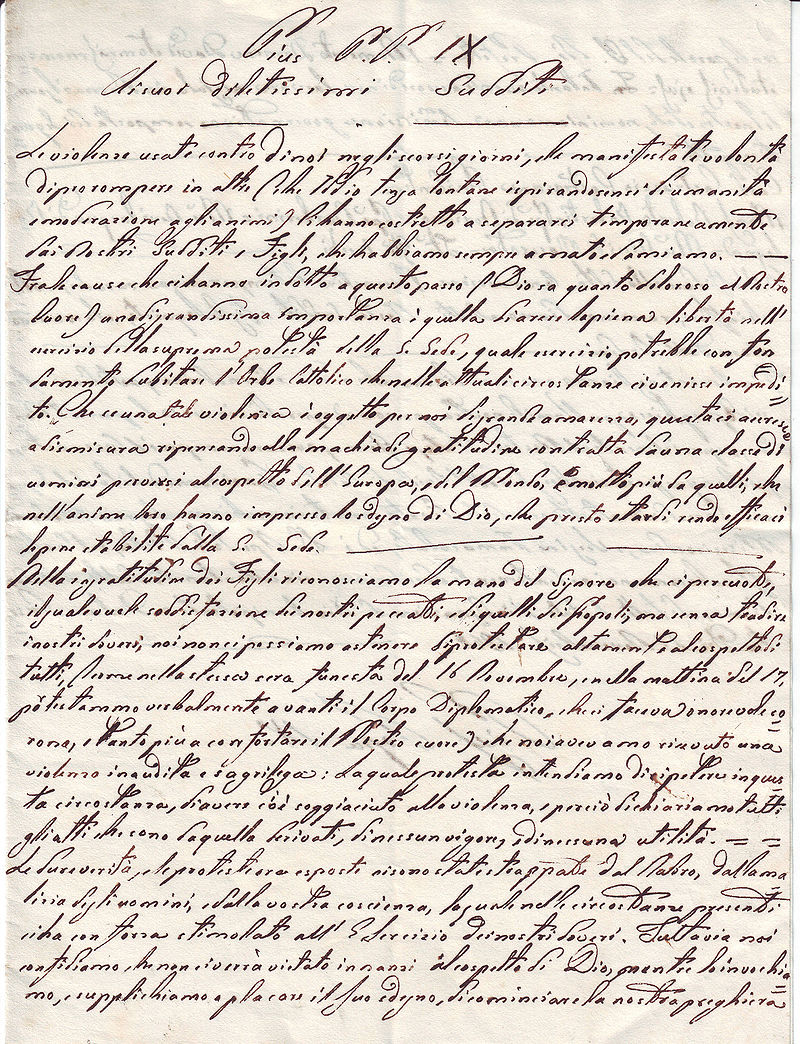 Pius P.P. IX
Ai suoi diletissimi Sudditi
Le violenze usate contro di noi negli scorsi giorni, e le manifestate volontà
di prorompere in altre (che Iddio tenga lontane ispirando sensi di umanità
e moderazione agli animi) Ci hanno costretto a separarci timporaneamente
dai Nostri Sudditi, e Figli, che habbiamo sempre amato ed amiamo. — —
Fra le cause che ci hanno indotto a questo passo (Dio sa quanto doloroso al Nostro
Cuore) una di grandissima importanza è quella di avere la piena libertà nell'
esercizio della suprema potestà della S. Sede, quale esercizio potrebbe con fon
damento dubitare l'Orbe Cattolico che nelle attuali circostanze ci venisse impedi=
to. Che se una tale violenza è oggetto per noi di grande amarezza, questa ci accresce
a dismisura ripensando alla machia di gratitudine contratta da una classe di
uomini perversi al cospetto dell'Europa, e del Mondo, e molto più da quelli, che
nell'anime loro hanno impresso lo sdegno di Dio, che presto o tardi rendo efficaci
le pene stabilite dalla S. Sede.
Nella ingratitudine dei Figli riconosciamo la mano del Signore che ci percuote,
il quale vuole soddisfazione dei nostri peccati, e di quelli dei Popoli, ma senza tradire
i nostri doveri, noi non ci possiamo astenere di protestare altamente al cospetto di
tutti, (come nella stessa sera funesta del 16 Novembre, e nella mattina del 17,
protestammo verbalmente avanti il Corpo Diplomatico, che ci faceva onorevole co=
rona, e tanto più a confortare il Nostro cuore) che noi avevamo ricevuto una
violenza inaudita e sagrilega: La quale protesta intendiamo di ripetere in ques=
ta circostanza, di avere cioè soggiaciuto alla violenza, e perciò dichiariamo tutti
gli atti che sono da quella derivati, di nessun vigore, e di nessuna utilità. = =
Le dure verità, e le proteste ora esposte ci sono state strappate dal labro, dalla ma
lizia degli uomini, e dalla nostra coscienza, la quale nelle circostanze presenti
ci ha con forza stimolato all'Esercizio dei nostri doveri. Tuttavia noi
confidiamo, che non ci verrà vietato innanzi al cospetto di Dio, mentre lo invochia=
mo, e supplichiamo a placare il suo sdegno, di cominciare la nostra preghiera